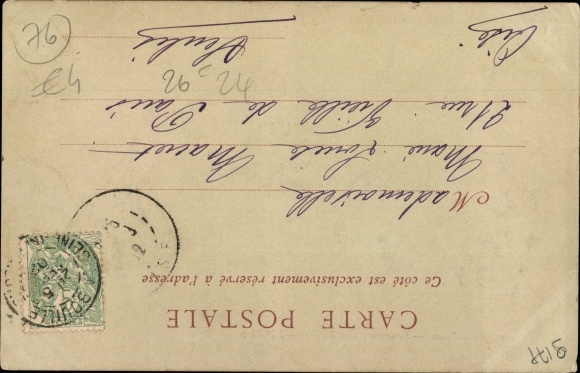 CARTE POSTALE
Ce côté est exclusivement réservé à l'adresse
Mademoiselle
Marie Louise Macret
21 rue Vieille de Paris
Senlis
Oise
76